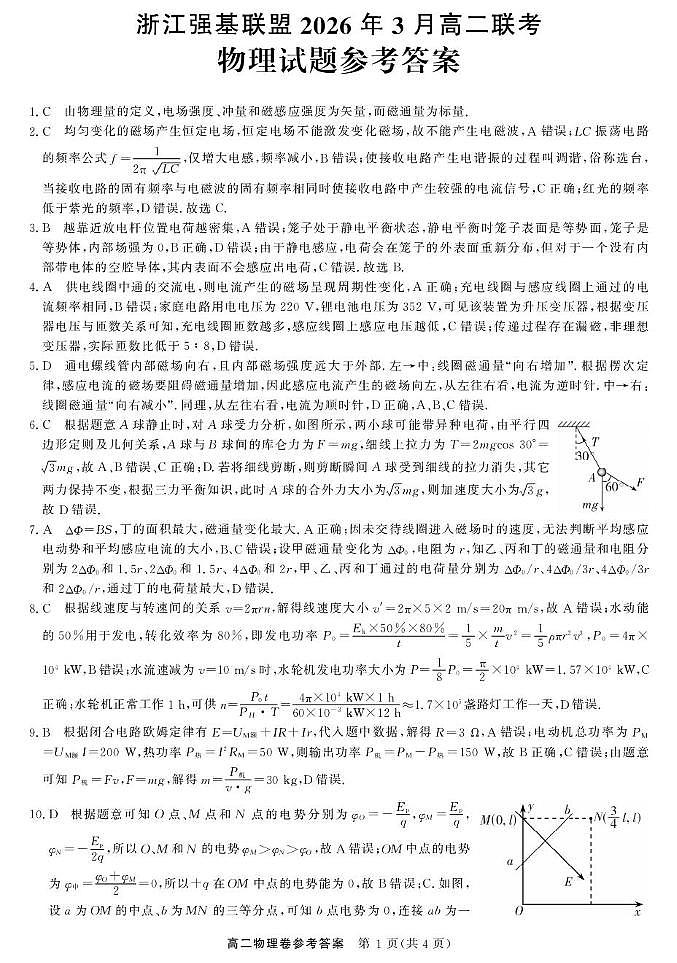 浙江强基联盟 2026 年 3 月高二联考
物理试题参考答案
1. C 由物理量的定义,电场强度、冲量和磁感应强度为矢量,而磁通量为标量.
2. C 均匀变化的磁场产生恒定电场,恒定电场不能激发变化磁场,故不能产生电磁波,A 错误;LC 振荡电路
的频率公式 f=1/(2π√LC),仅增大电感,频率减小,B 错误;使接收电路产生电谐振的过程叫调谐,俗称选台,
当接收电路的固有频率与电磁波的固有频率相同时使接收电路中产生较强的电流信号,C 正确;红光的频率
低于紫光的频率,D 错误. 故选 C.
3. B 越靠近放电杆位置电荷越密集,A 错误;笼子处于静电平衡状态,静电平衡时笼子表面是等势面,笼子是
等势体,内部场强为 0,B 正确,D 错误;由于静电感应,电荷会在笼子的外表面重新分布,但对于一个没有内
部带电体的空腔导体,其内表面不会感应出电荷,C 错误. 故选 B.
4. A 供电线圈中通的交流电,则电流产生的磁场呈现周期性变化,A 正确;充电线圈与感应线圈上通过的电
流频率相同,B 错误;家庭电路用电电压为 220 V,锂电池电压为 352 V,可见该装置为升压变压器,根据变压
器电压与匝数关系可知,充电线圈匝数越多,感应线圈上感应电压越低,C 错误;传递过程存在漏磁,非理想
变压器,实际匝数比低于 5∶8,D 错误.
5. D 通电螺线管内部磁场向右,且内部磁场强度远大于外部. 左→中:线圈磁通量“向右增加”. 根据楞次定
律,感应电流的磁场要阻碍磁通量增加,因此感应电流产生的磁场向左,从左往右看,电流为逆时针. 中→右:
线圈磁通量“向右减小”. 同理,从左往右看,电流为顺时针,D 正确,A、B、C 错误.
6. C 根据题意 A 球静止时,对 A 球受力分析,如图所示,两小球可能带异种电荷,由平行四
边形定则及几何关系,A 球与 B 球间的库仑力为 F=mg,细线上拉力为 T=2mgcos 30°=
√3mg,故 A、B 错误、C 正确;D. 若将细线剪断,则剪断瞬间 A 球受到细线的拉力消失,其它
两力保持不变,根据三力平衡知识,此时 A 球的合外力大小为√3mg,则加速度大小为√3g,
故 D 错误.
T
30
A
60
F
mg
7. A ΔΦ=BS,丁的面积最大,磁通量变化最大. A 正确;因未交待线圈进入磁场时的速度,无法判断平均感应
电动势和平均感应电流的大小,B、C 错误;设甲磁通量变化为 ΔΦ₀,电阻为 r,知乙、丙和丁的磁通量和电阻分
别为 2ΔΦ₀ 和 1.5r、2ΔΦ₀ 和 1.5r、4ΔΦ₀ 和 2r,甲、乙、丙和丁通过的电荷量分别为 ΔΦ₀/r、4ΔΦ₀/3r、4ΔΦ₀/3r
和 2ΔΦ₀/r,通过丁的电荷量最大,D 错误.
8. C 根据线速度与转速间的关系 v=2πrn,解得线速度大小 v′=2π×5×2 m/s=20π m/s,故 A 错误;水动能
的 50%用于发电,转化效率为 80%,即发电功率 P₀=(Eₖ×50%×80%)/t=1/5×m/t v²=1/5 ρπr²v³,P₀=4π×
10⁴ kW,B 错误;水流速减为 v=10 m/s 时,水轮机发电功率大小为 P=1/8 P₀=π/2×10⁴ kW=1.57×10⁴ kW,C
正确;水轮机正常工作 1 h,可供 n=P₀t/(P灯·T)=(4π×10⁴ kW×1 h)/(60×10⁻³ kW×12 h)≈1.7×10⁵ 盏路灯工作一天,D 错误.
9. B 根据闭合电路欧姆定律有 E=U_M额+IR+Ir,代入题中数据,解得 R=3 Ω,A 错误;电动机总功率为 P_M
=U_M额 I=200 W,热功率 P热=I²R_M=50 W,则输出功率 P机=P_M-P热=150 W,故 B 正确,C 错误;由题意
可知 P机=Fv,F=mg,解得 m=P机/(v·g)=30 kg,D 错误.
10. D 根据题意可知 O 点、M 点和 N 点的电势分别为 φ_O=-E_p/q,φ_M=E_p/q,
φ_N=-E_p/2q,所以 O、M 和 N 的电势 φ_M>φ_N>φ_O,故 A 错误;OM 中点的电势
为 φ中=(φ_O+φ_M)/2=0,所以+q 在 OM 中点的电势能为 0,故 B 错误;C. 如图,
设 a 为 OM 的中点、b 为 MN 的三等分点,可知 b 点电势为 0,连接 ab 为一
y
M(0,l)
b
N(3/4 l,l)
a
E
O
x
高二物理卷参考答案 第 1 页(共 4 页)